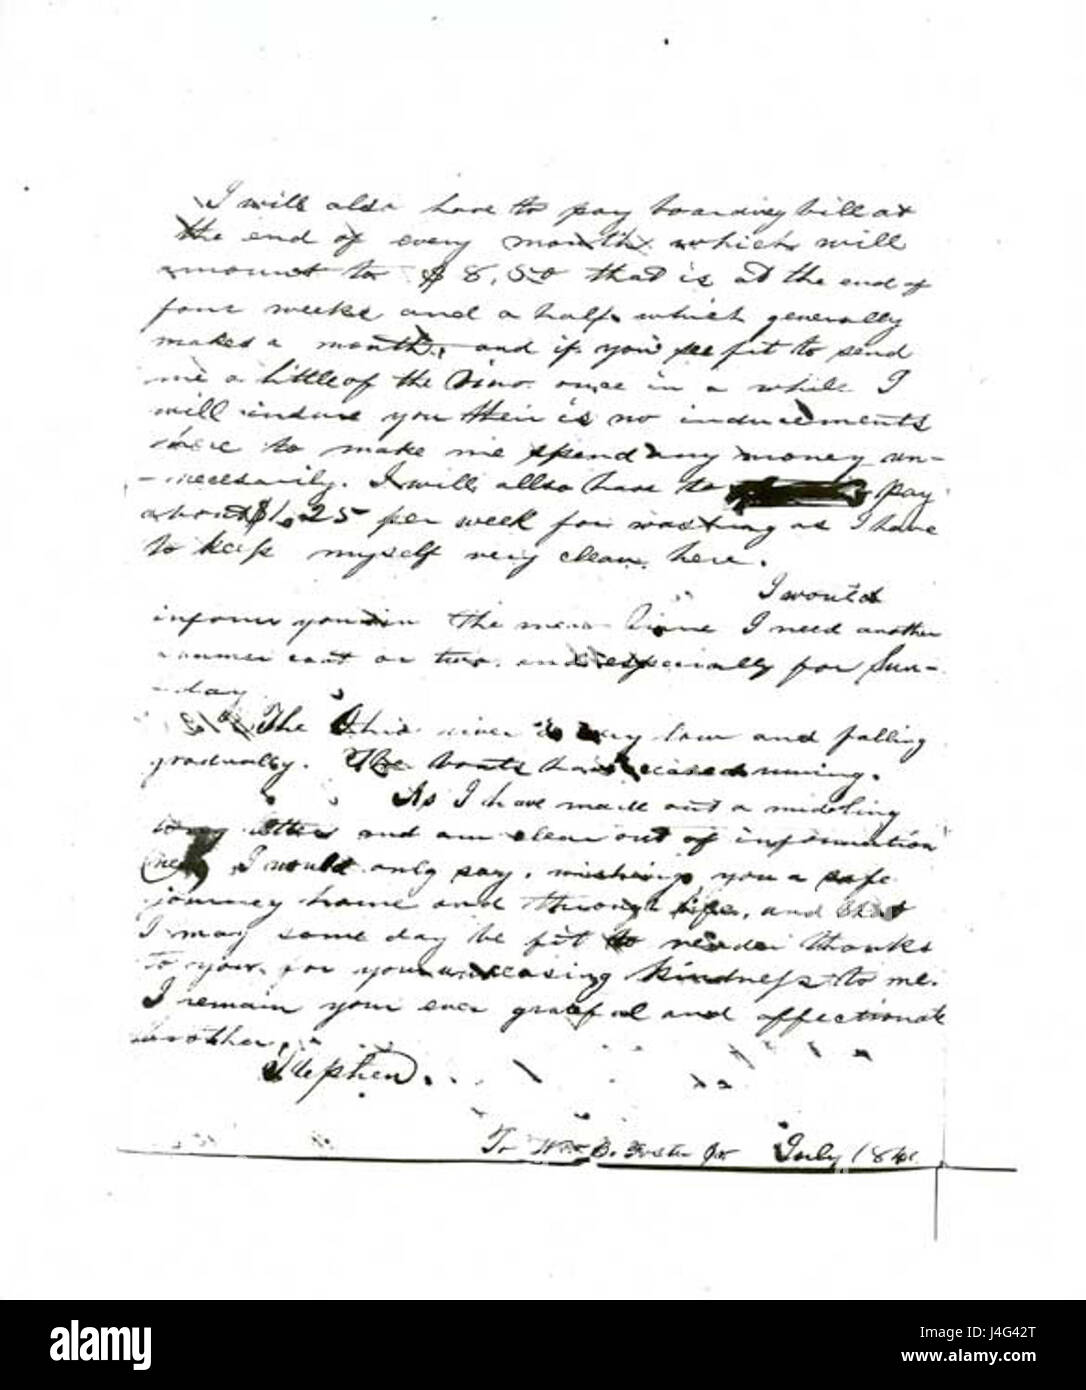 I will also have to pay boarding bill at
the end of every month which will
amount to $8,50 that is at the end of
four weeks and a half which generally
makes a month, and if you see fit to send
me a little of the once in a while I
will insure you their is no inducements
here to make me spend any money un-
-necessarily. I will allso have to pay
about $1,25 per week for washing as I have
to keep myself very clean here.
I would
inform you in the mean time I need another
summer coat or two. and especially for Sun-
-day
The Ohio river is very low and falling
gradually. The boats have ceased running.
As I have made out a midling
long letter and am clear out of information
I would only say, wishing you a safe
journey home and through life, and that
I may some day be fit to render thanks
to you for your unceasing kindness to me.
I remain your ever grateful and affectionate
brother.
Stephen.
To Wm B. Foster Jr July 184
alamy
alamy
Image ID: J4G42T
www.alamy.com